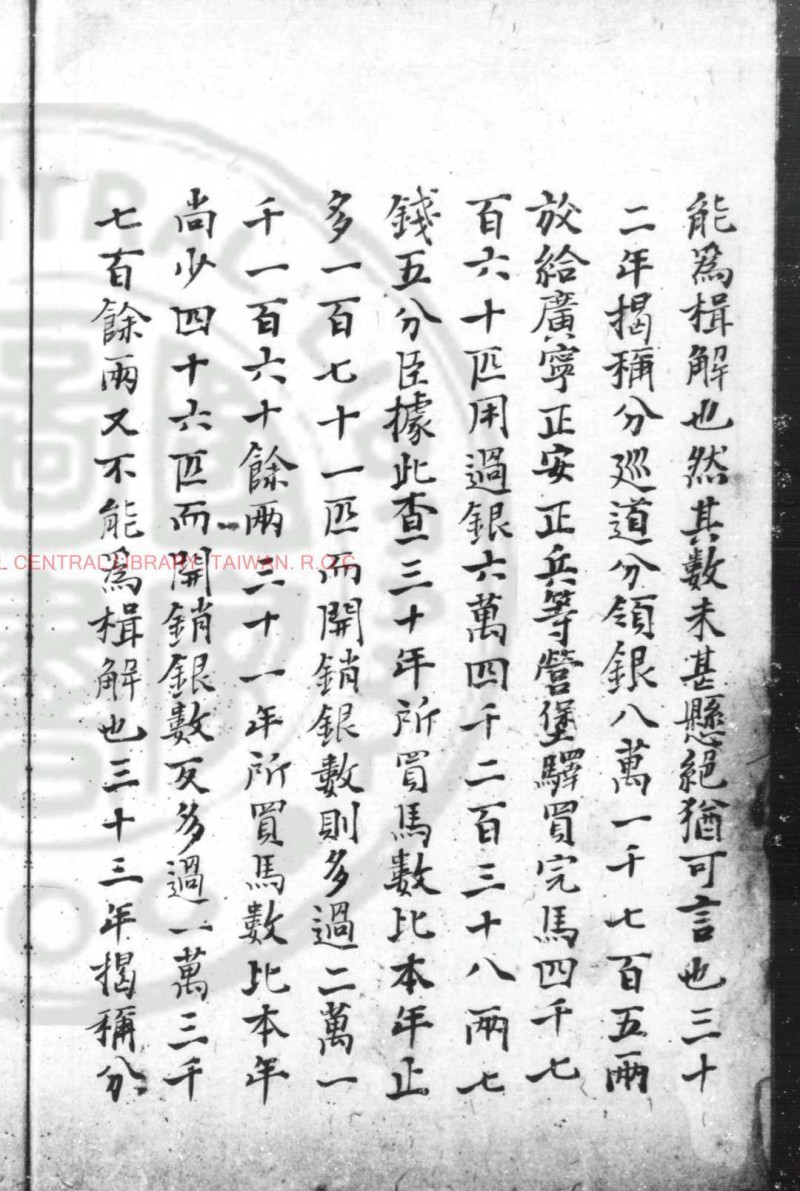 能為楫解也然其數未甚懸絕猶可言也三十
二年揭稱分廵道分領銀八萬一千七百五兩
放給廣寧正安正兵等營堡驛買完馬四千七
百六十匹用過銀六萬四千二百三十八兩七
錢五分臣據此查三十年所買馬數比本年止
多一百七十一匹而開銷銀數則多過二萬一
千一百六十餘兩三十一年所買馬數比本年
尚少四十六匹而開銷銀數反多過一萬三千
七百餘兩又不能為楫解也三十三年揭稱分
L CENTRAL LIBRARY, TAIWAN. R.O.C